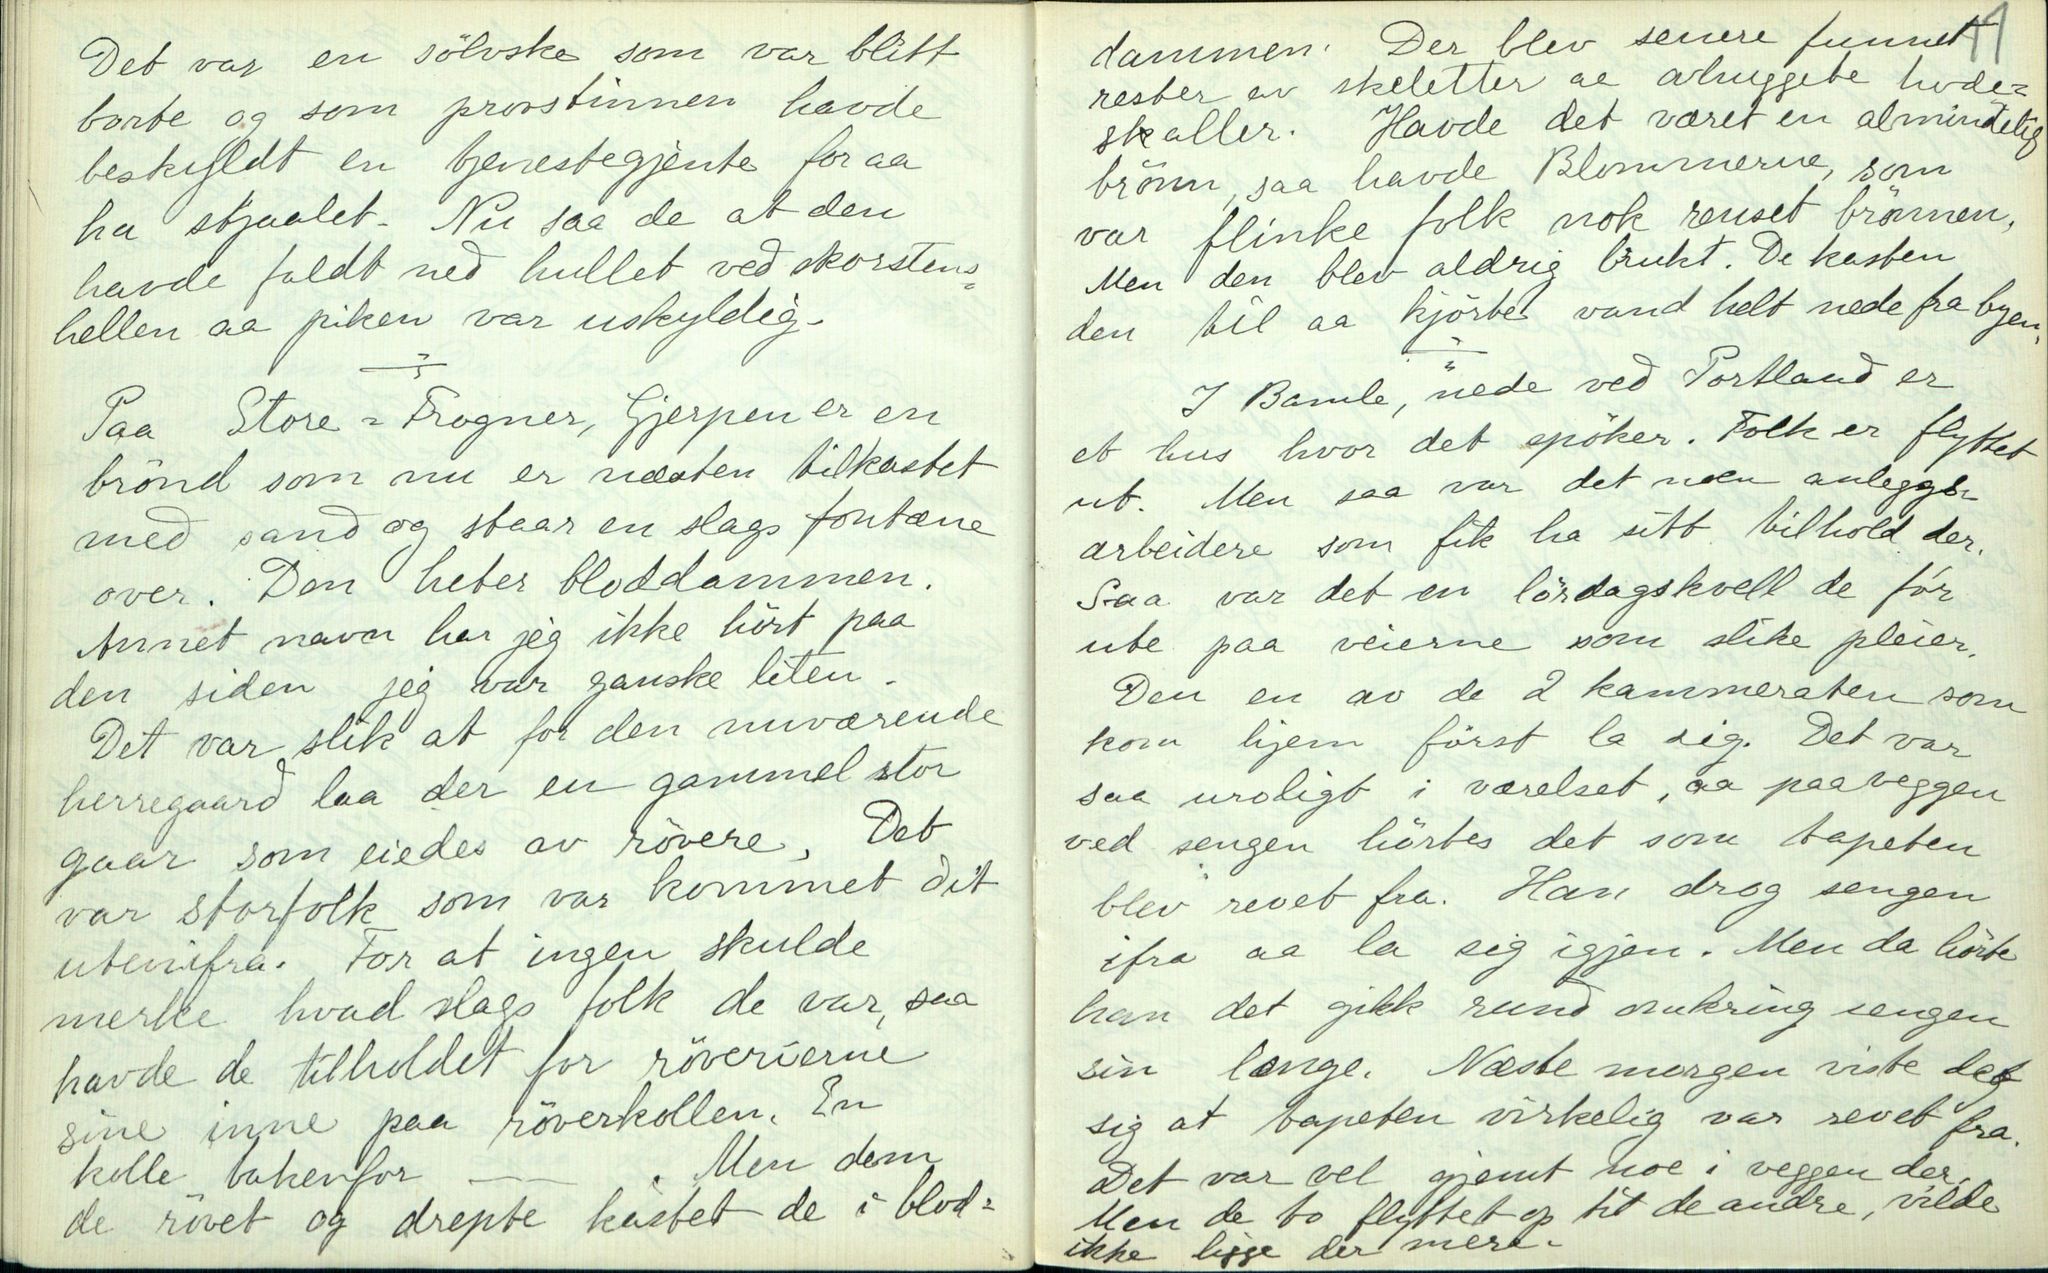 Det var en sölvske som var blitt
borte og som provstinnen havde
beskyldt en tjenestegjente for aa
ha stjaalet. Nu saa de at den
havde faldt ned hullet ved skorstens=
hellen aa piken var uskyldig.
Paa Store = Frogner, Gjerpen er en
brönd som nu er næsten tilkastet
med sand og staar en slags fontæne
over. Den heter bloddammen.
Annet navn har jeg ikke hört paa
den siden jeg var ganske liten.
Det var slik at for den nuværende
herregaard laa der en gammel stor
gaar som eiedes av rövere. Det
var storfolk som var kommet dit
utenifra. For at ingen skulde
merke hvad slags folk de var, saa
havde de tilholdet for röverierne
sine inne paa röverkollen. En
kolle bakenfor — — . Men dem
de rövet og drepte kastet de i blod=
49
dammen. Der blev senere funnet
rester av skeletter ae avhuggete hode=
skaller. Havde det været en almindelig
brönn, saa havde Blommerne, som
var flinke folk nok renset brönnen.
Men den blev aldrig brukt. De kasten
den til aa kjörte vand helt nede fra byen.
I Bamle, nede ved Portland er
et hus hvor det spöker. Folk er flyttet
ut. Men saa var det noen anleggs-
arbeidere som fik ha sitt tilhold der.
Saa var det en lördagskvell de fór
ute paa veierne som slike pleier.
Den en av de 2 kammeraten som
kom hjem först la sig. Det var
saa uroligt i værelset, aa paa veggen
ved sengen hörtes det som tapeten
blev revet fra. Han drog sengen
ifra aa la sig igjen. Men da hörte
han det gikk rund omkring sengen
sin længe. Næste morgen viste det
sig at tapeten virkelig var revet fra.
Det var vel gjemt noe i veggen der.
Men de to flyttet op til de andre, vilde
ikke ligge der mere.